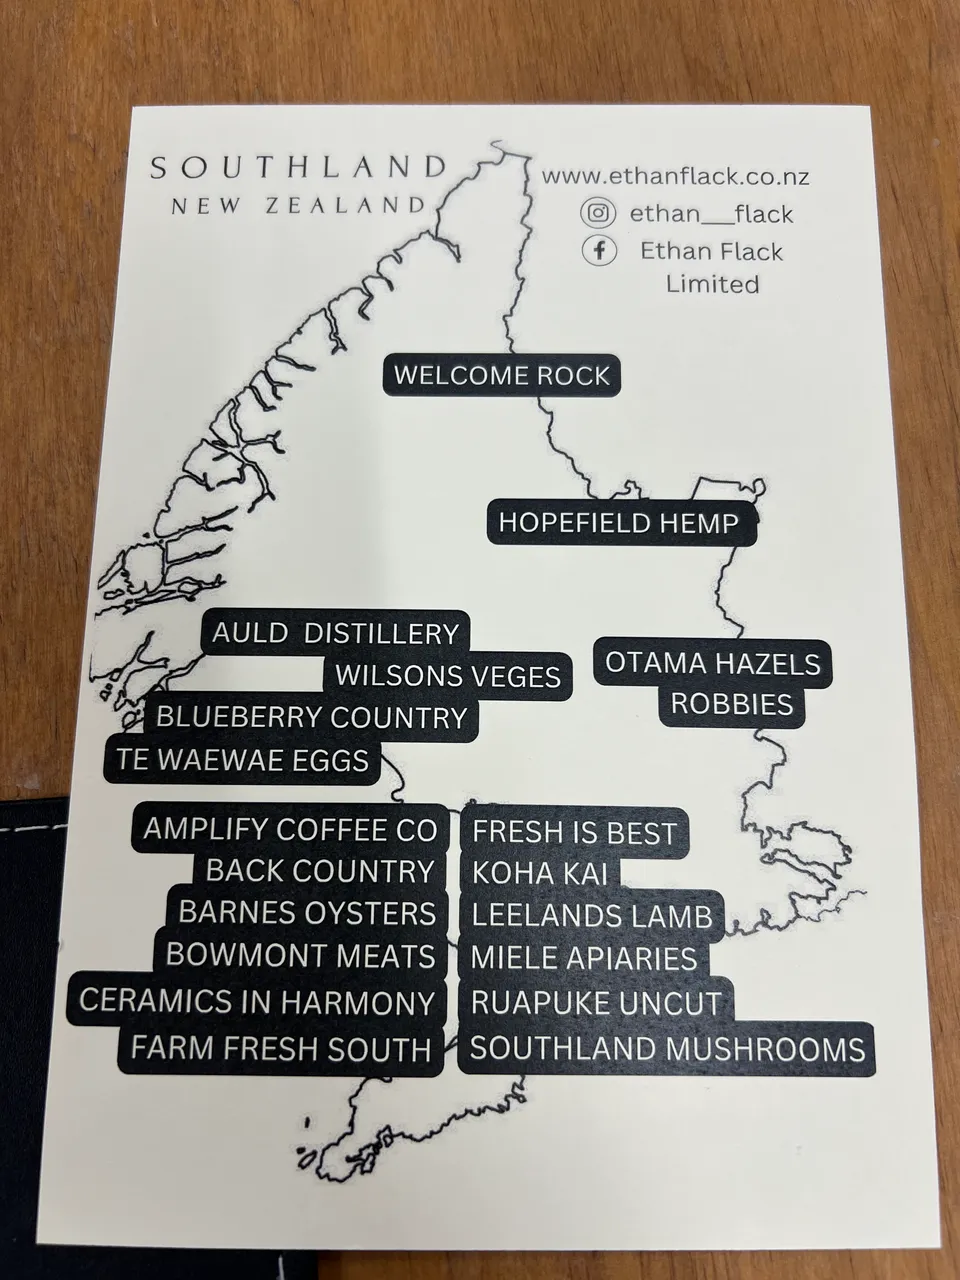 SOUTHLAND
NEW ZEALAND
www.ethanflack.co.nz
ethan__flack
Ethan Flack
Limited
WELCOME ROCK
HOPEFIELD HEMP
AULD DISTILLERY
WILSONS VEGES
BLUEBERRY COUNTRY
TE WAEWAE EGGS
OTAMA HAZELS
ROBBIES
AMPLIFY COFFEE CO
BACK COUNTRY
BARNES OYSTERS
BOWMONT MEATS
CERAMICS IN HARMONY
FARM FRESH SOUTH
FRESH IS BEST
KOHA KAI
LEELANDS LAMB
MIELE APIARIES
RUAPUKE UNCUT
SOUTHLAND MUSHROOMS